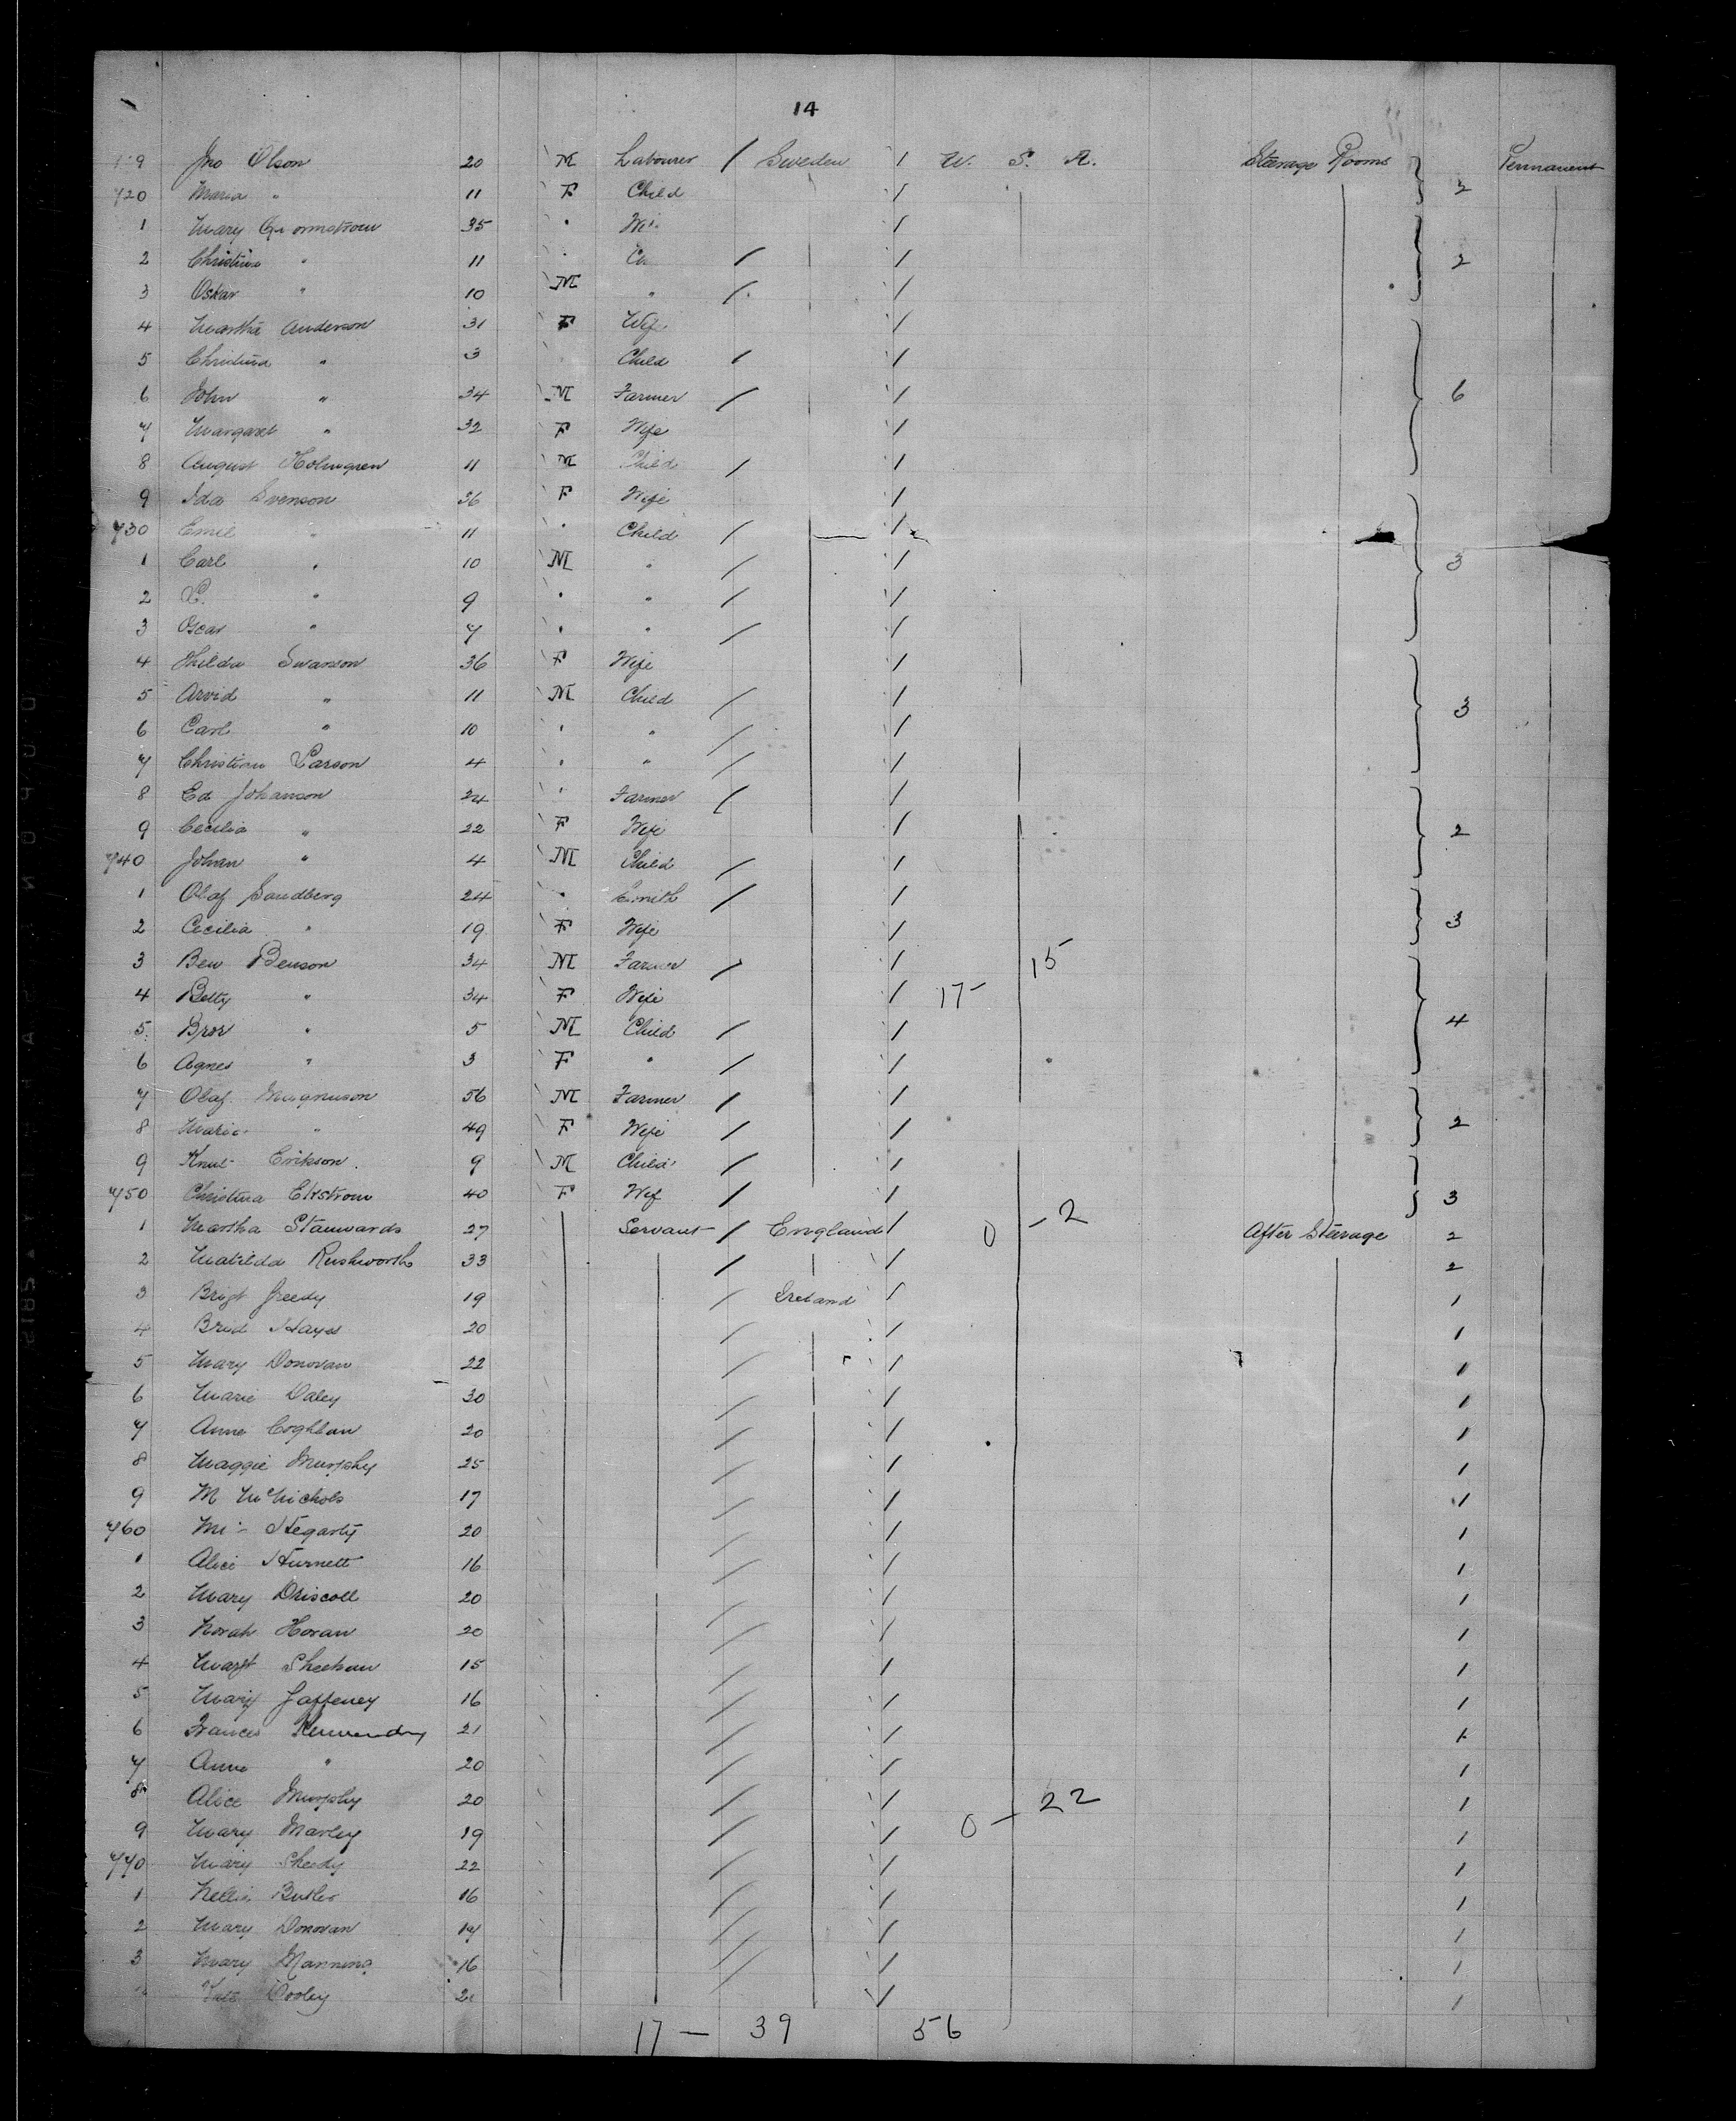 14
9 Jno Olson 20 M Labourer / Sweden / U. S. A. Steerage Rooms Permanent
720 Maria " 11 F Child / 2
1 Mary 35 " /
2 Christina " 11 " / / 2
3 Oskar " 10 M " / /
4 Martha Anderson 31 F Wife /
5 Christina " 3 Child / /
6 John " 34 M Farmer / / 6
7 Margaret " 32 F Wife /
8 August Holmgren 11 M Child / /
9 Ida Svenson 36 F Wife /
730 Emil " 11 " Child / /
1 Carl " 10 M " / / 3
2 " 9 " " / /
3 Oscar " 7 " " / /
4 Hilda Swanson 36 F Wife /
5 Arvid " 11 M Child / / 3
6 Carl " 10 " " / /
7 Christian Larson 4 " " / /
8 Ed Johanson 24 " Farmer / /
9 Cecilia " 22 F Wife / 2
740 Johan " 4 M Child / /
1 Olaf Sandberg 24 " Smith / /
2 Cecilia " 19 F Wife / 3
3 Ben Benson 34 M Farmer / / 15
4 Betty " 34 F Wife / 17-
5 Bror " 5 M Child / / 4
6 Agnes " 3 F " / /
7 Olaf Magnuson 56 M Farmer / /
8 Maria " 49 F Wife / / 2
9 Knut Erikson 9 M Child / /
750 Christina Ekstrom 40 F Wife / / 3
1 Martha Stanwards 27 Servant / England / 0 - 2 After Steerage 2
2 Matilda Rushworth 33 / / 2
3 Brigt Greedy 19 / Ireland / 1
4 Brid Hayes 20 / / 1
5 Mary Donovan 22 / / 1
6 Marie Daley 30 / / 1
7 Anne Coghlan 20 / / 1
8 Maggie Murphy 25 / / 1
9 M McNichols 17 / / 1
760 Hegarty 20 / / 1
1 Alice Hurnett 16 / / 1
2 Mary Driscoll 20 / / 1
3 Norah Horan 20 / / 1
4 Margt Sheehan 15 / / 1
5 Mary Gaffeney 16 / / 1
6 Frances 21 / / 1
7 Anne " 20 / / 1
8 Alice Murphy 20 / / 0 - 22 1
9 Mary Marley 19 / / 1
770 Mary Sheedy 22 / / 1
1 Nellie Butler 16 / / 1
2 Mary Donovan 17 / / 1
3 Mary Manning 16 / / 1
Dooley / / 1
17 - 39 56